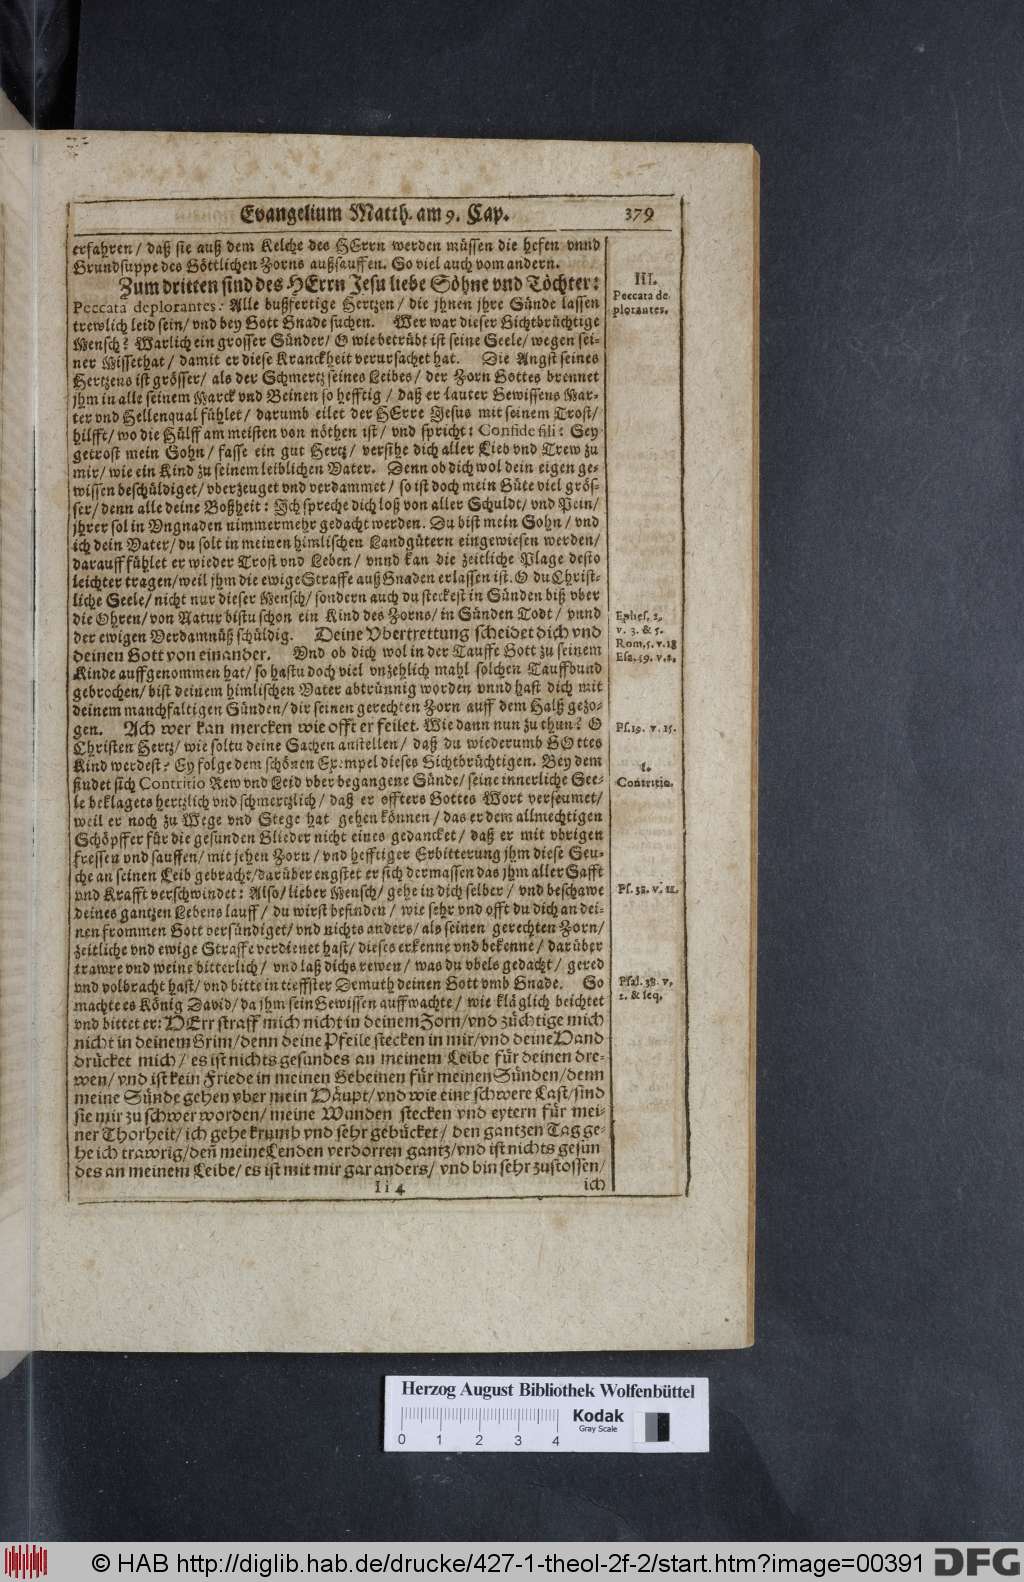 Evangelium Matth. am 9. Cap. 379
erfahren / daß sie auß dem Kelche des HErrn werden müssen die hefen vnnd
Grundsuppe des Göttlichen Zorns außsauffen. So viel auch vom andern.
Zum dritten sind des HErrn Jesu liebe Söhne vnd Töchter:
Peccata deplorantes: Alle bußfertige Hertzen / die jhnen jhre Sünde lassen
trewlich leid sein / vnd bey Gott Gnade suchen. Wer war dieser Gichtbrüchtige
Mensch? Warlich ein grosser Sünder / O wie betrübt ist seine Seele / wegen sei-
ner Missethat / damit er diese Kranckheit verursachet hat. Die Angst seines
Hertzens ist grösser / als der Schmertz seines Leibes / der Zorn Gottes brennet
jhm in alle seinem Marck vnd Beinen so hefftig / daß er lauter Gewissens Mar-
ter vnd Hellenqual fühlet / darumb eilet der HErre Jesus mit seinem Trost /
hilfft / wo die Hülff am meisten von nöthen ist / vnd spricht: Confide fili: Sey
getrost mein Sohn / fasse ein gut Hertz / versihe dich aller Lieb vnd Trew zu
mir / wie ein Kind zu seinem leiblichen Vater. Denn ob dich wol dein eigen ge-
wissen beschüldiget / vberzeuget vnd verdammet / so ist doch mein Güte viel grös-
ser / denn alle deine Boßheit: Ich spreche dich loß von aller Schuldt / vnd Pein /
jhrer sol in Vngnaden nimmermehr gedacht werden. Du bist mein Sohn / vnd
ich dein Vater / du solt in meinen himlischen Landgütern eingewiesen werden /
darauff fühlet er wieder Trost vnd Leben / vnnd kan die zeitliche Plage desto
leichter tragen / weil jhm die ewige Straffe auß Gnaden erlassen ist. O du Christ-
liche Seele / nicht nur dieser Mensch / sondern auch du steckest in Sünden biß vber
die Ohren / von Natur bistu schon ein Kind des Zorns / in Sünden Todt / vnnd
der ewigen Verdamnüß schüldig. Deine Vbertrettung scheidet dich vnd
deinen Gott von einander. Vnd ob dich wol in der Tauffe Gott zu seinem
Kinde auffgenommen hat / so hastu doch viel vnzehlich mahl solchen Tauffbund
gebrochen / bist deinem himlischen Vater abtrünnig worden vnnd hast dich mit
deinem manchfaltigen Sünden / dir seinen gerechten Zorn auff dem Halß gezo-
gen. Ach wer kan mercken wie offt er feilet. Wie dann nun zu thun? O
Christen Hertz / wie soltu deine Sachen anstellen / daß du wiederumb GOttes
Kind werdest? Ey folge dem schönen Exempel dieses Gichtbrüchtigen. Bey dem
findet sich Contritio Rew vnd Leid vber begangene Sünde / seine innerliche See-
le beklagets hertzlich vnd schmertzlich / daß er offters Gottes Wort verseumet /
weil er noch zu Wege vnd Stege hat gehen können / das er dem allmechtigen
Schöpffer für die gesunden Glieder nicht eines gedancket / daß er mit vbrigen
fressen vnd sauffen / mit jehen Zorn / vnd hefftiger Erbitterung jhm diese Seu-
che an seinen Leib gebracht / darüber engstet er sich dermassen das jhm aller Safft
vnd Krafft verschwindet: Also / lieber Mensch / gehe in dich selber / vnd beschawe
deines gantzen Lebens lauff / du wirst befinden / wie sehr vnd offt du dich an dei-
nen frommen Gott versündiget / vnd nichts anders / als seinen gerechten Zorn /
zeitliche vnd ewige Straffe verdienet hast / dieses erkenne vnd bekenne / darüber
trawre vnd weine bitterlich / vnd laß dichs rewen / was du vbels gedacht / gered
vnd volbracht hast / vnd bitte in tieffster Demuth deinen Gott vmb Gnade. So
machte es König David / da jhm sein Gewissen auffwachte / wie kläglich beichtet
vnd bittet er: HErr straff mich nicht in deinem Zorn / vnd züchtige mich
nicht in deinem Grim / denn deine Pfeile stecken in mir / vnd deine Hand
drücket mich / es ist nichts gesundes an meinem Leibe für deinen dre-
wen / vnd ist kein Friede in meinen Gebeinen für meinen Sünden / denn
meine Sünde gehen vber mein Häupt / vnd wie eine schwere Last / sind
sie mir zu schwer worden / meine Wunden stecken vnd eytern für mei-
ner Thorheit / ich gehe krumb vnd sehr gebücket / den gantzen Tag ge-
he ich trawrig / deñ meine Lenden verdorren gantz / vnd ist nichts gesun
des an meinem Leibe / es ist mit mir gar anders / vnd bin sehr zustossen /
Iii 4 ich
III.
Peccata de
plorantes.
Ephes. 2.
v. 3. & 5.
Rom. 5. v. 18
Esa. 59. v. 2.
Ps. 19. v. 15.
1.
Contritio.
Ps. 38. v. 11.
Psal. 38. v.
2. & seq.
Herzog August Bibliothek Wolfenbüttel
0 1 2 3 4
Kodak
Gray Scale
© HAB http://diglib.hab.de/drucke/427-1-theol-2f-2/start.htm?image=00391
DFG